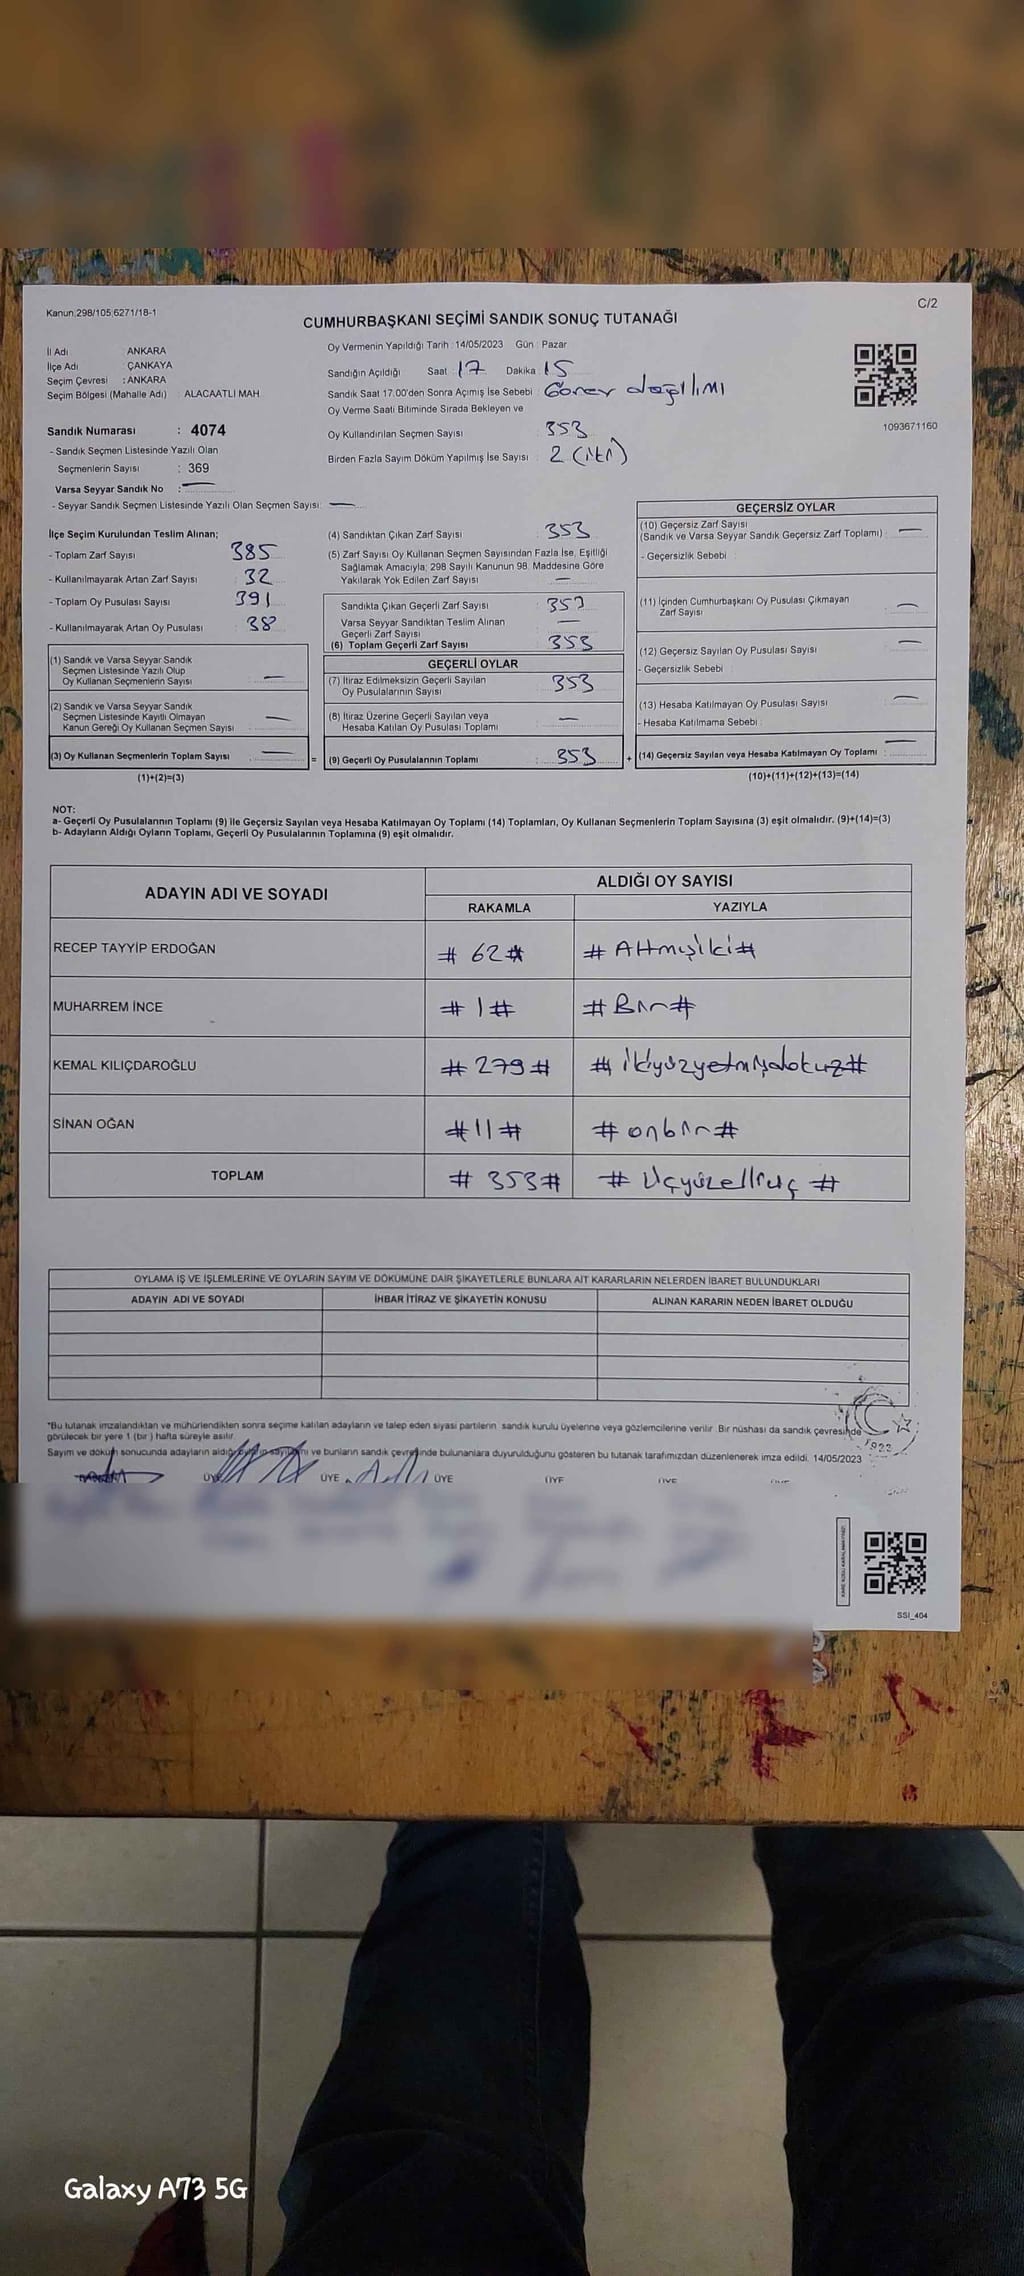 Kanun:298/105;6271/18-1
C/2
CUMHURBAŞKANI SEÇİMİ SANDIK SONUÇ TUTANAĞI
İl Adı ANKARA
İlçe Adı ÇANKAYA
Seçim Çevresi : ANKARA
Seçim Bölgesi (Mahalle Adı) : ALACAATLI MAH
Oy Vermenin Yapıldığı Tarih : 14/05/2023 Gün : Pazar
Sandığın Açıldığı Saat : 17 Dakika : 15
Sandık Saat 17.00'den Sonra Açımış İse Sebebi : Görev dağılımı
Oy Verme Saati Bitiminde Sırada Bekleyen ve
Oy Kullandırılan Seçmen Sayısı : 353
Birden Fazla Sayım Döküm Yapılmış İse Sayısı : 2 (iki)
1093671160
Sandık Numarası : 4074
- Sandık Seçmen Listesinde Yazılı Olan
Seçmenlerin Sayısı : 369
Varsa Seyyar Sandık No : —
- Seyyar Sandık Seçmen Listesinde Yazılı Olan Seçmen Sayısı: —
İlçe Seçim Kurulundan Teslim Alınan;
- Toplam Zarf Sayısı : 385
- Kullanılmayarak Artan Zarf Sayısı : 32
- Toplam Oy Pusulası Sayısı : 391
- Kullanılmayarak Artan Oy Pusulası : 38
(1) Sandık ve Varsa Seyyar Sandık
Seçmen Listesinde Yazılı Olup
Oy Kullanan Seçmenlerin Sayısı : —
(2) Sandık ve Varsa Seyyar Sandık
Seçmen Listesinde Kayıtlı Olmayan
Kanun Gereği Oy Kullanan Seçmen Sayısı : —
(3) Oy Kullanan Seçmenlerin Toplam Sayısı : — =
(1)+(2)=(3)
(4) Sandıktan Çıkan Zarf Sayısı : 353
(5) Zarf Sayısı Oy Kullanan Seçmen Sayısından Fazla İse, Eşitliği
Sağlamak Amacıyla; 298 Sayılı Kanunun 98. Maddesine Göre
Yakılarak Yok Edilen Zarf Sayısı : —
Sandıkta Çıkan Geçerli Zarf Sayısı : 353
Varsa Seyyar Sandıktan Teslim Alınan
Geçerli Zarf Sayısı : —
(6) Toplam Geçerli Zarf Sayısı : 353
GEÇERLİ OYLAR
(7) İtiraz Edilmeksizin Geçerli Sayılan
Oy Pusulalarının Sayısı : 353
(8) İtiraz Üzerine Geçerli Sayılan veya
Hesaba Katılan Oy Pusulası Toplamı : —
(9) Geçerli Oy Pusulalarının Toplamı : 353 +
GEÇERSİZ OYLAR
(10) Geçersiz Zarf Sayısı
(Sandık ve Varsa Seyyar Sandık Geçersiz Zarf Toplamı) : —
- Geçersizlik Sebebi :
(11) İçinden Cumhurbaşkanı Oy Pusulası Çıkmayan
Zarf Sayısı : —
(12) Geçersiz Sayılan Oy Pusulası Sayısı : —
- Geçersizlik Sebebi :
(13) Hesaba Katılmayan Oy Pusulası Sayısı : —
- Hesaba Katılmama Sebebi :
(14) Geçersiz Sayılan veya Hesaba Katılmayan Oy Toplamı : —
(10)+(11)+(12)+(13)=(14)
NOT:
a- Geçerli Oy Pusulalarının Toplamı (9) ile Geçersiz Sayılan veya Hesaba Katılmayan Oy Toplamı (14) Toplamları, Oy Kullanan Seçmenlerin Toplam Sayısına (3) eşit olmalıdır. (9)+(14)=(3)
b- Adayların Aldığı Oyların Toplamı, Geçerli Oy Pusulalarının Toplamına (9) eşit olmalıdır.
ADAYIN ADI VE SOYADI ALDIĞI OY SAYISI
RAKAMLA YAZIYLA
RECEP TAYYİP ERDOĞAN # 62 # # Altmışiki #
MUHARREM İNCE # 1 # # Bir #
KEMAL KILIÇDAROĞLU # 279 # # ikiyüzyetmişdokuz #
SİNAN OĞAN # 11 # # onbir #
TOPLAM # 353 # # Üçyüzelliüç #
OYLAMA İŞ VE İŞLEMLERİNE VE OYLARIN SAYIM VE DÖKÜMÜNE DAİR ŞİKAYETLERLE BUNLARA AİT KARARLARIN NELERDEN İBARET BULUNDUKLARI
ADAYIN ADI VE SOYADI İHBAR İTİRAZ VE ŞİKAYETİN KONUSU ALINAN KARARIN NEDEN İBARET OLDUĞU
*Bu tutanak imzalandıktan ve mühürlendikten sonra seçime katılan adayların ve talep eden siyasi partilerin sandık kurulu üyelerine veya gözlemcilerine verilir. Bir nüshası da sandık çevresinde
görülecek bir yere 1 (bir) hafta süreyle asılır.
Sayım ve döküm sonucunda adayların aldığı oyların sayılarını ve bunların sandık çevresinde bulunanlara duyurulduğunu gösteren bu tutanak tarafımızdan düzenlenerek imza edildi. 14/05/2023
1923
ÜYE ÜYE ÜYE ÜYE ÜYE
SSI_404
Galaxy A73 5G